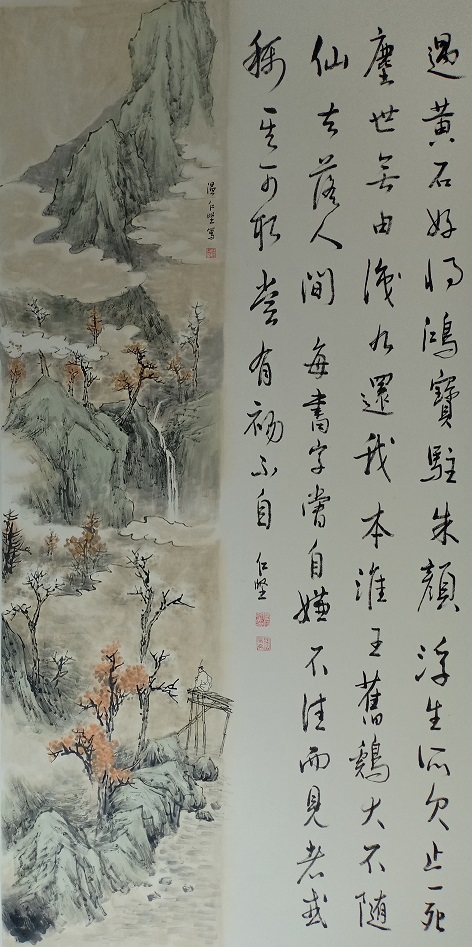 遇黄石好将鴻寶駐朱顏浮生所欠止一死
塵世無由識九還我本淮王舊鷄犬不隨
仙去落人間每書字嘗自嫌不佳而見者或
稱其可取嘗有初不自 仁堅
温仁堅寫